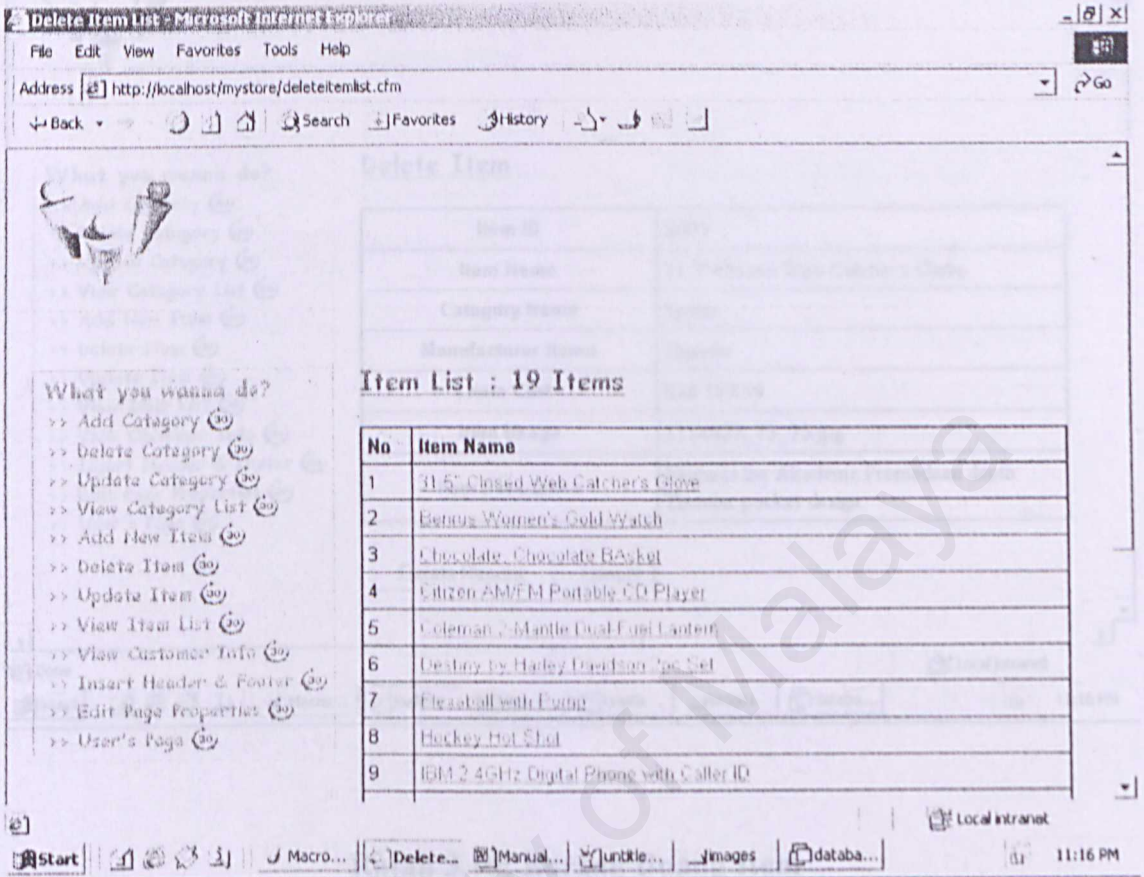 Delete Item List - Microsoft Internet Explorer
File Edit View Favorites Tools Help
Address http://localhost/mystore/deleteitemlist.cfm Go
Back Search Favorites History
Delete Item
Item ID
Item Name
Category Name
Manufacturer Name
What you wanna do?
>> Add Category Go
>> Delete Category Go
>> Update Category Go
>> View Category List Go
>> Add New Item Go
>> Delete Item Go
>> Update Item Go
>> View Item List Go
>> View Customer Info Go
>> Insert Header & Footer Go
>> Edit Page Properties Go
>> User's Page Go
Item List : 19 Items
No Item Name
1 31.5" Closed Web Catcher's Glove
2 Benrus Women's Gold Watch
3 Chocolate, Chocolate BAsket
4 Citizen AM/FM Portable CD Player
5 Coleman 2-Mantle Dual Fuel Lantern
6 Destiny by Harley Davidson 2pc Set
7 Flexaball with Pump
8 Hockey Hot Shot
9 IBM 2.4GHz Digital Phone with Caller ID
Local intranet
Start Macro... Delete... Manual... untitle... images databa... 11:16 PM
of Malaya